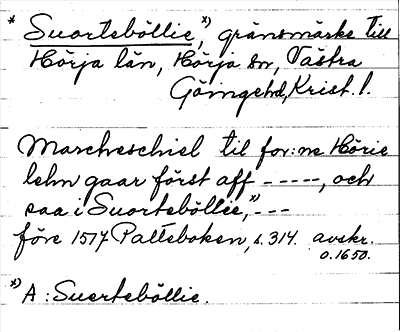 * Suorteböllie,*) gränsmärke till
Hörja län, Hörja sn, Västra
Göingehd, Krist. l.
Marcheschiel til for:ne Hörie
lehn gaar först aff -----, och
saa i Suortebölle,*) ---
före 1517 Palteboken, s. 314. avskr.
o.1650.
*) A: Suertebôllie.